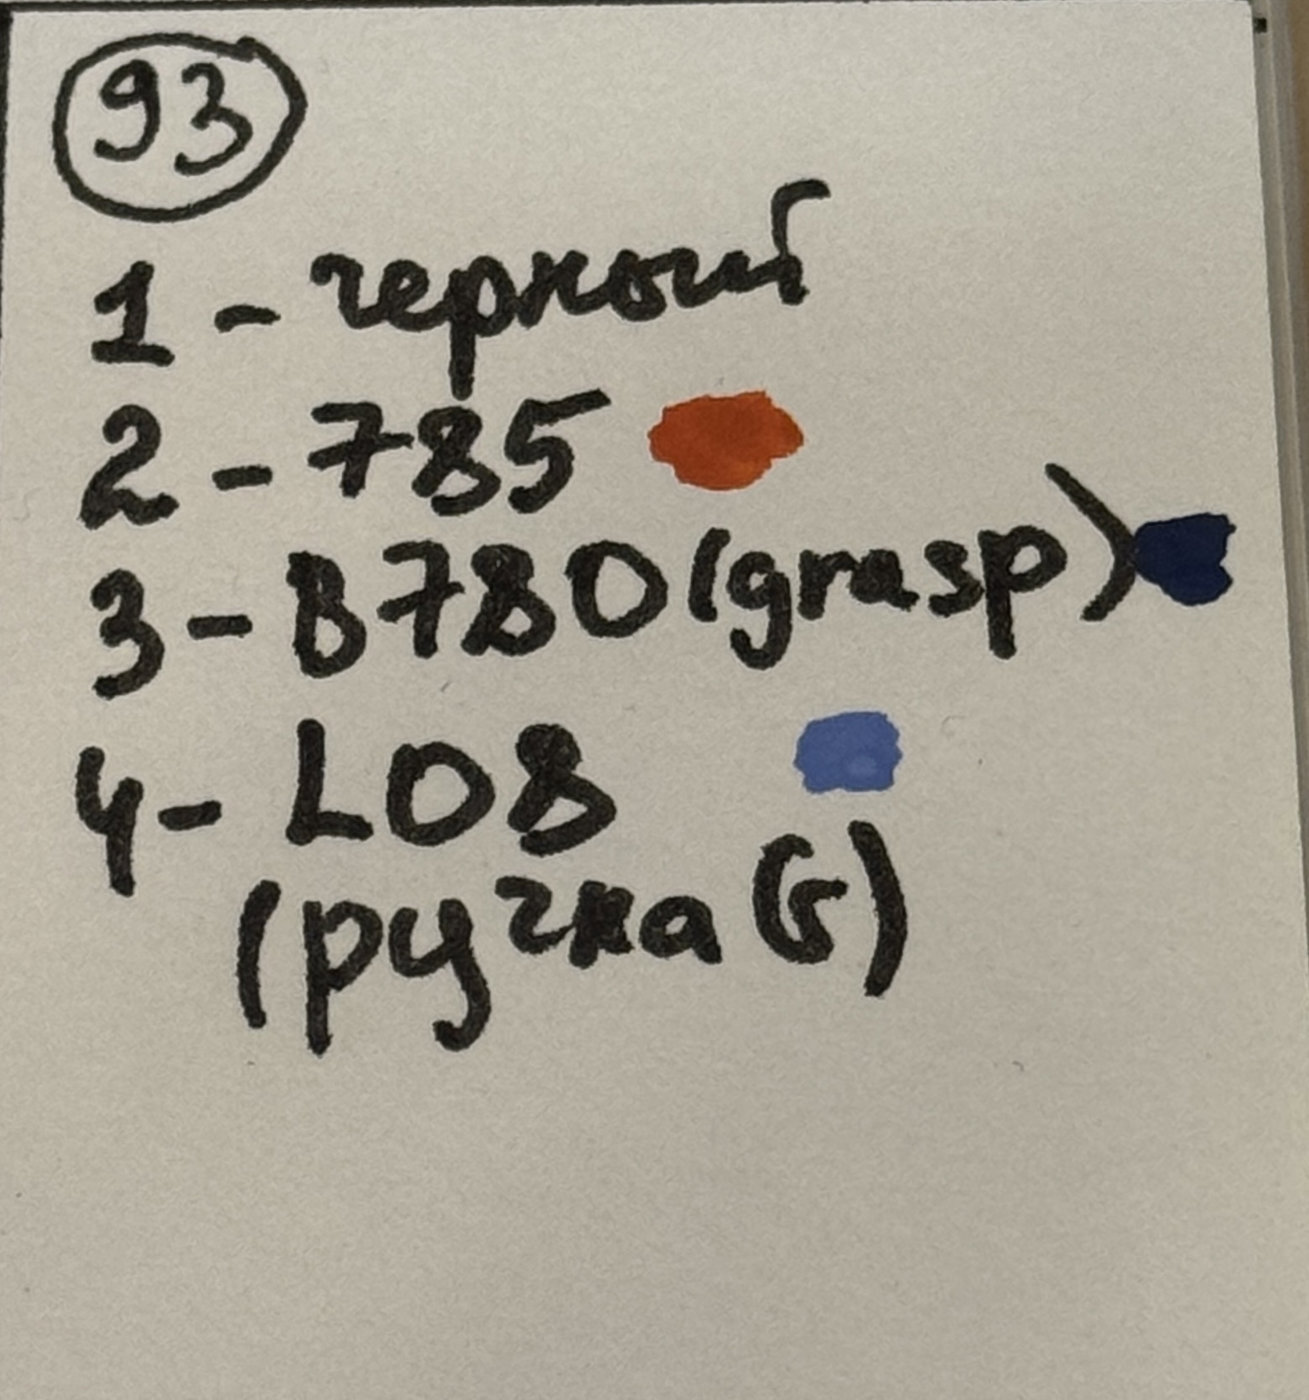 93
1 - черный
2 - 785
3 - B780 (grasp)
4 - L08
(ручка G)